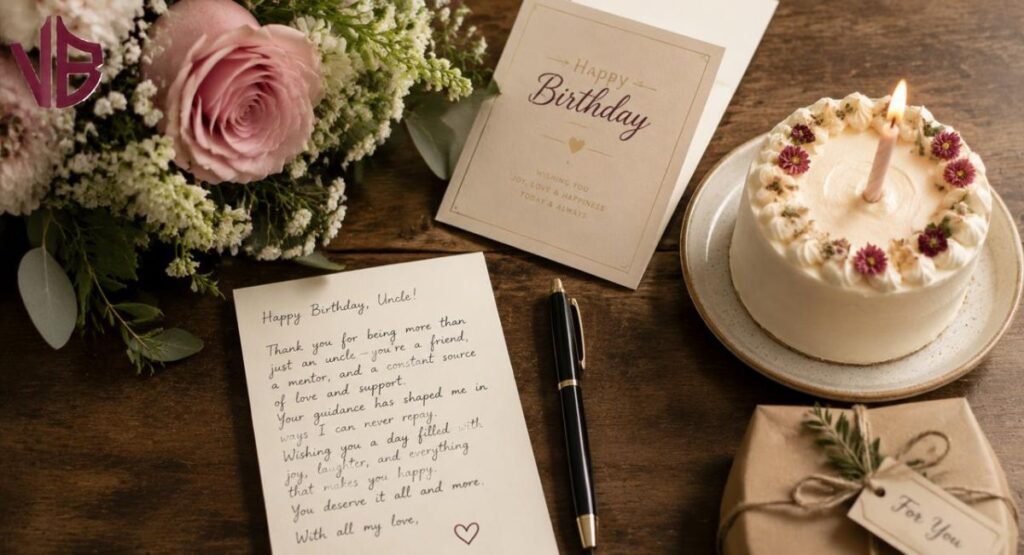 VB
Happy
Birthday
WISHING YOU
JOY, LOVE & HAPPINESS
TODAY & ALWAYS
Happy Birthday, Uncle!
Thank you for being more than
just an uncle – you're a friend,
a mentor, and a constant source
of love and support.
Your guidance has shaped me in
ways I can never repay.
Wishing you a day filled with
joy, laughter, and everything
that makes you happy.
You deserve it all and more.
With all my love,
For You